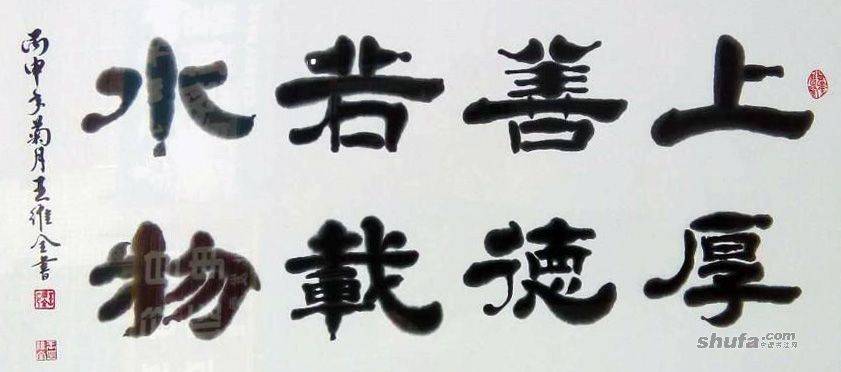 上善若水
厚德載物
丙申年菊月王維全書
shufa.com